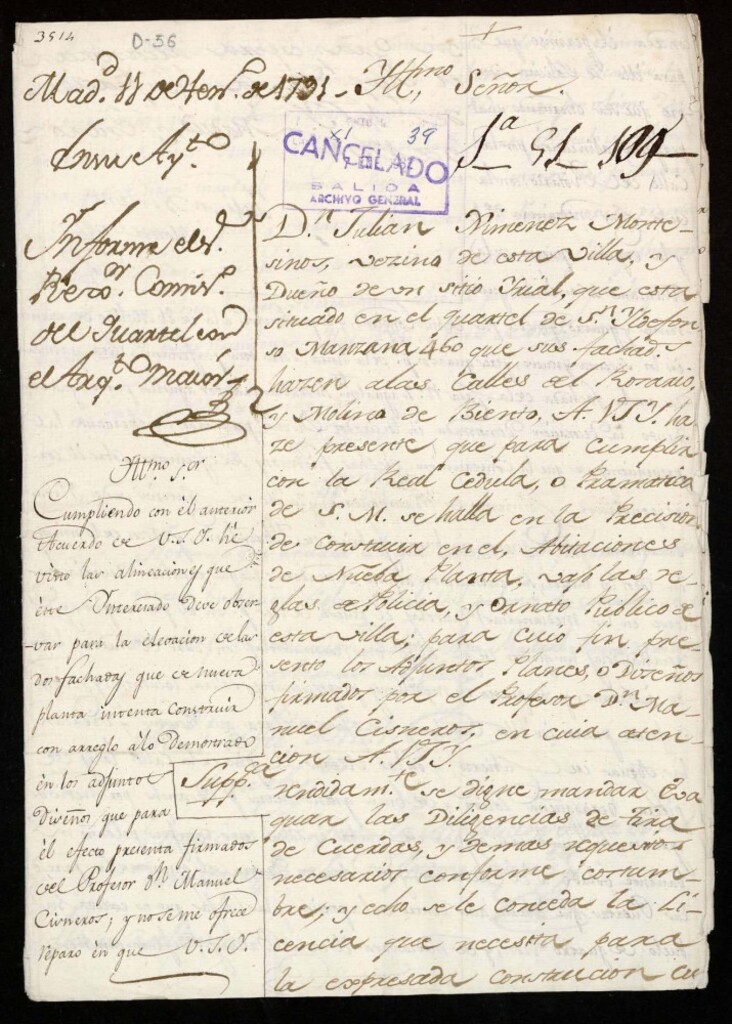 3514
D-56
Mad.d 11 de Hen.o de 1791 -
Ill.mo Señor.
En su Ay.to
CANCELADO
39
SALIDA
ARCHIVO GENERAL
1a 51 109
Informe el S.r
Rexo.r Comis.o
del Quartel con
el Arq.to maior
D.n Julian Ximenez Monte-
sinos, vezino de esta villa, y
Dueño de un sitio Yrial, que esta
situado en el quartel de S.n Yldefon-
so Manzana 460 que sus fachad.s
hazen alas Calles del Rosario,
y Molino de Biento, A. VSY. ha-
ze presente que para cumplir
con la Real Cedula, o Pramatica
de S. M. se halla en la Precision
de construir en el, Abitaciones
de Nueba Planta, vajo las re-
glas de Policia, y Ornato Publico de
esta villa; para cuio fin pre-
sento los Adjuntos Planes, o Diseños
firmados por el Profesor D.n Ma-
nuel Cisneros, en cuia aten-
cion A. VSY.
Supp.ca
rendidam.te se digne mandar Eva
quar las Diligencias de tira
de Cuerdas, y demas requesitos
necesarios conforme costum-
bre; y echo se le conceda la Li-
cencia que necesita para
la expresada construcion cu
Ill.mo S.or
Cumpliendo con el anterior
Acuerdo de V.S.Y. hé
visto las alineaciones que
este Interesado deve obser-
var para la elevacion de las
dos fachadas que de nueva
planta intenta construir
con arreglo á lo Demostrado
en los adjuntos
Diseños que para
el efecto presenta firmados
del Profesor D.n Manuel
Cisneros; y no se me ofrece
reparo en que V.S.Y.